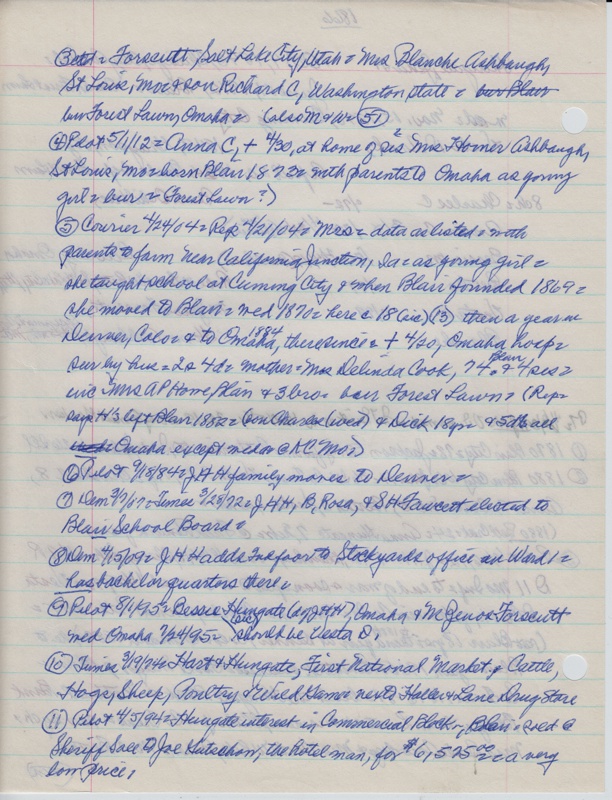 = Forscutt, Salt Lake City, Utah = Mrs Blanche Ashbaugh,
St Louis, Mo & son Richard C, Washington state = bur Blair
bur Forest Lawn, Omaha = (also M & W = 51)
④ Pilot 5/1/12 = Anna C, + 4/30, at home of sis Mrs Homer Ashbaugh,
St Louis, Mo = born Blair 1873 = with parents to Omaha as young
girl = bur = Forest Lawn?)
⑤ Courier 4/24/04 = Rep 4/21/04 = Mrs = data as listed = with
parents to farm near California Junction, Ia = as young girl =
she taught school at Cuming City & when Blair founded 1869 =
she moved to Blair = med 1870 = here = 18 (sic) (13) then a year in
Denver, Colo = & to Omaha, 1884 there since = + 4/20, Omaha hosp =
sur by hus = 2s 4d = mother = Mrs Delinda Cook, 74, Blair & 4 sis =
inc Mrs A P Home Blair & 3 bro = bur Forest Lawn = (Rep =
says H's left Blair 1882 = son Charles (wed) & Dick 18yr = & 5 db all
Omaha except md one @ K C Mo =)
⑥ Pilot 9/18/84 = J H H family moves to Denver =
⑦ Dem 3/7/67 = Times 3/28/72 = J H H, B, Rosa, & S H Fawcett elected to
Blair School Board =
⑧ Dem 4/15/09 = J H H adds 2nd floor to Stockyards office in Ward 1 =
Has bachelor quarters there =
⑨ Pilot 8/1/95 = Bessie Hungate (sic) (dg J H H), Omaha & Mc Forscutt
med Omaha 7/24/95 = should be Vesta D,
⑩ Times 3/19/74 = Hart & Hungate, First National Market = Cattle,
Hogs, Sheep, Poultry & Wild Game next to Haller & Lane Drug Store
⑪ Pilot 4/5/94 = Hungate interest in Commercial Block, Blair = sold @
Sheriff Sale to Joe Hutschow, the hotel man, for $6,525.00 = a very
low price,